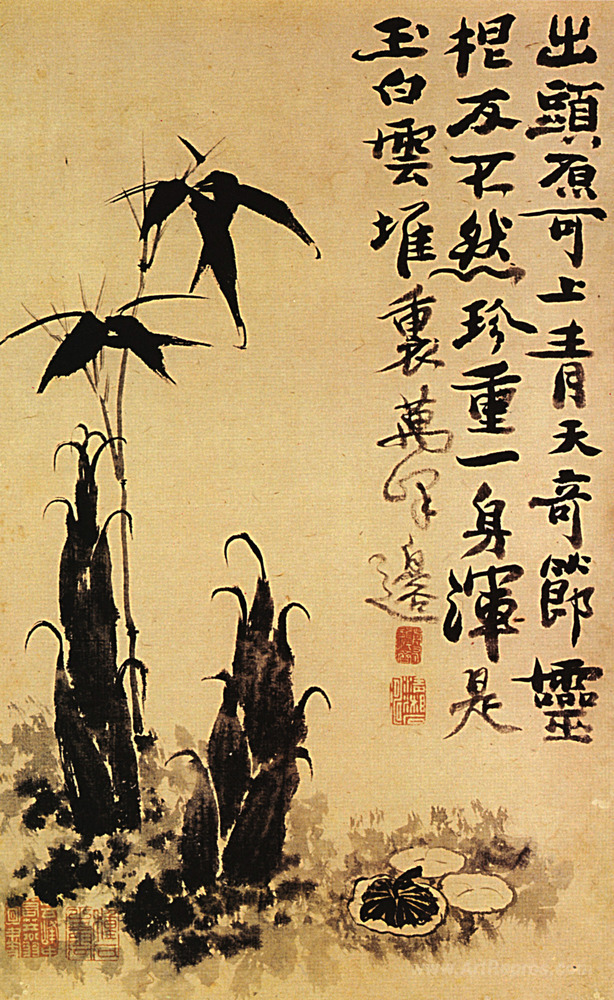 出頭原可上青天奇節靈
根反不然珍重一身渾是
玉白雲堆裏萬峯邊
www.ArtRepros.com